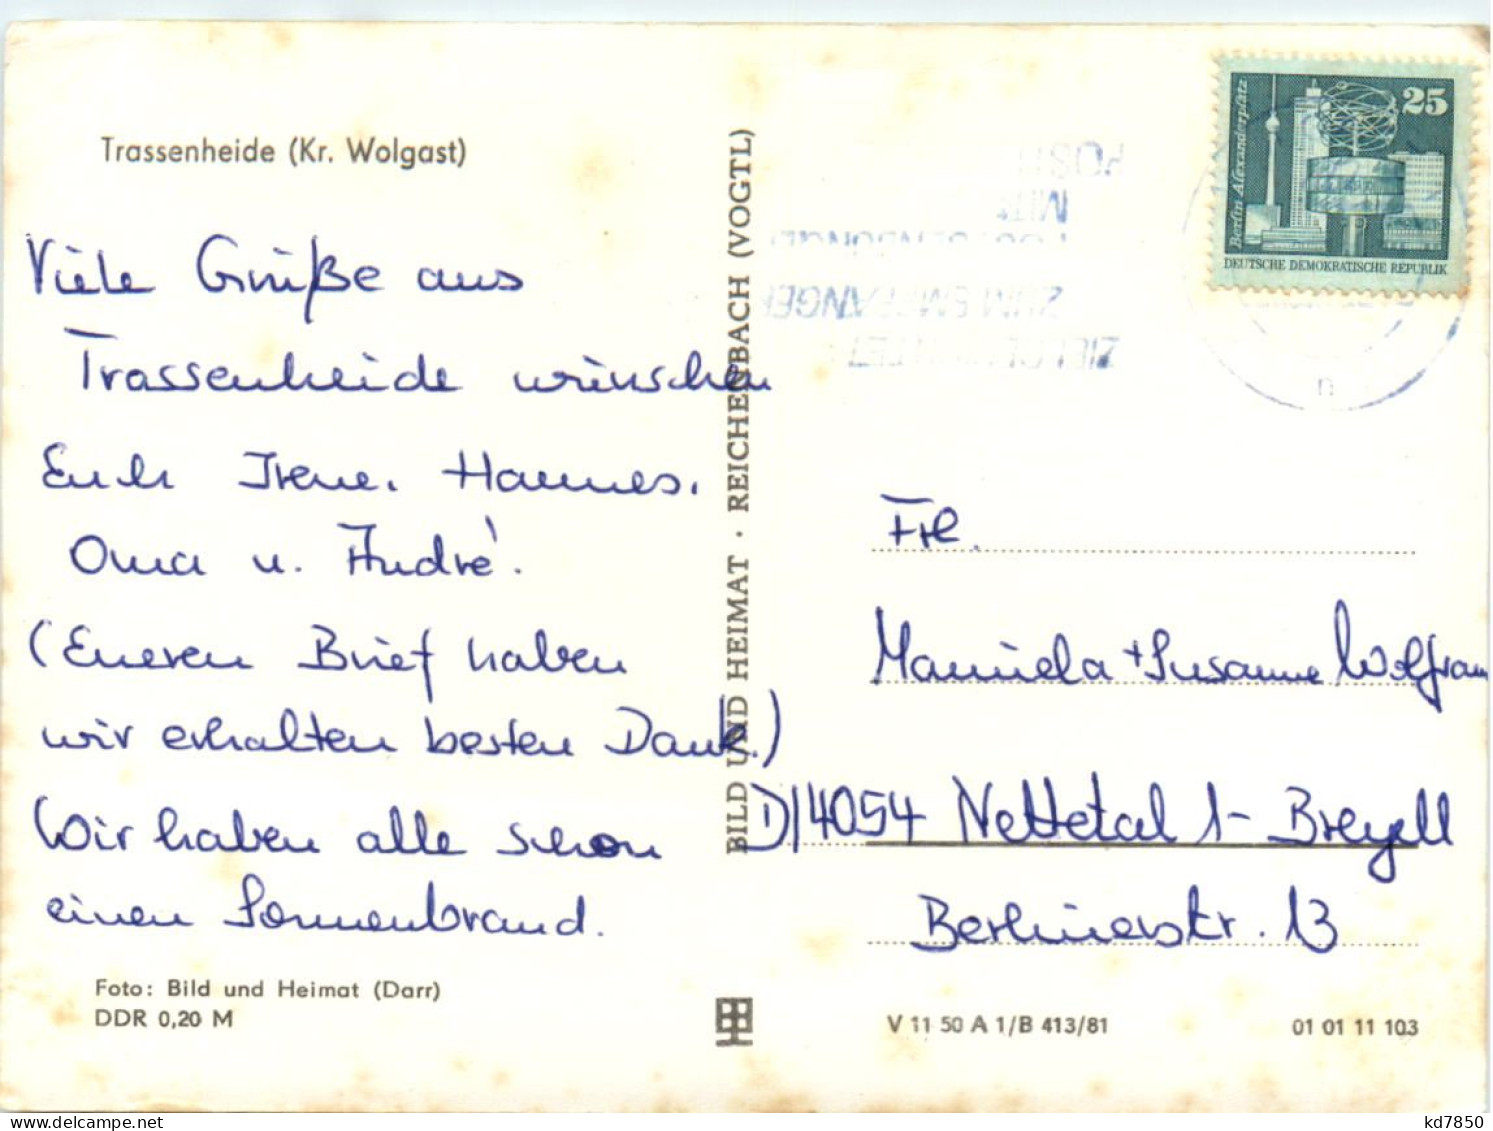 Trassenheide (Kr. Wolgast)
Viele Grüße aus
Trassenheide wünschen
Euch Irene, Hannes,
Oma u. André.
(Eueren Brief haben
wir erhalten besten Dank.)
Wir haben alle schon
einen Sonnenbrand.
Foto: Bild und Heimat (Darr)
DDR 0,20 M
BILD UND HEIMAT · REICHENBACH (VOGTL)
25
Berlin Alexanderplatz
DEUTSCHE DEMOKRATISCHE REPUBLIK
MIT
ZUM EMPFÄNGER
Frl.
Manuela + Susanne Wolfram
D/4054 Nettetal 1- Breyell
Berlinerstr. 13
V 11 50 A 1/B 413/81
01 01 11 103
kd7850